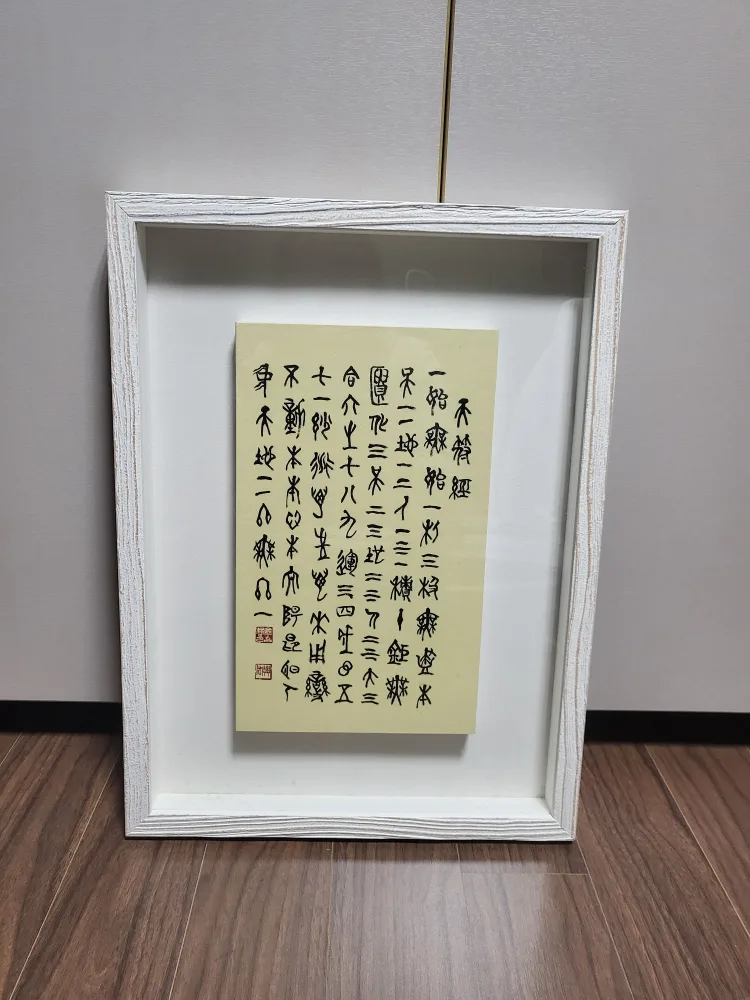 天符經
一始無始一析三極無盡本
天一一地一二人一三一積十鉅無
匱化三天二三地二三人二三大三
合六生七八九運三四成環五
七一妙衍萬往萬來用變
不動本本心本太陽昂明人
中天地一一終無終一